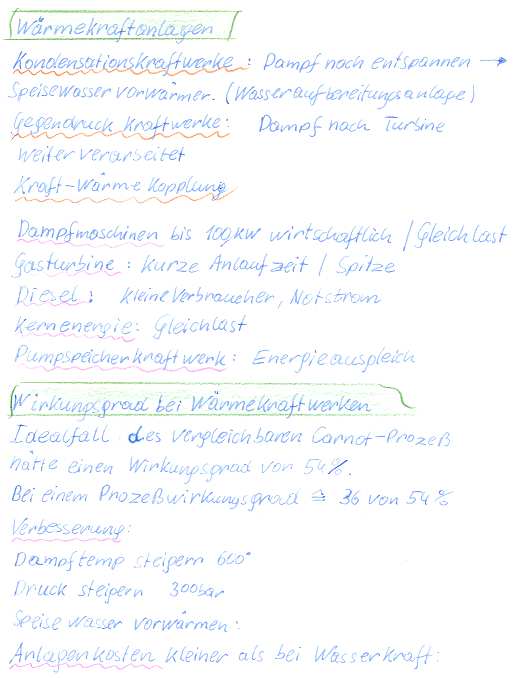 Wärmekraftanlagen
Kondensationskraftwerke: Dampf nach entspannen →
Speisewasser vorwärmer. (Wasseraufbereitungsanlage)
Gegendruck Kraftwerke: Dampf nach Turbine
weiter verarbeitet
Kraft-Wärme Kopplung
Dampfmaschinen bis 100KW wirtschaftlich / Gleichlast
Gasturbine: kurze Anlaufzeit / Spitze
Diesel: kleine Verbraucher, Notstrom
Kernenergie: Gleichlast
Pumpspeicherkraftwerk: Energieausgleich
Wirkungsgrad bei Wärmekraftwerken
Idealfall des vergleichbaren Carnot-Prozeß
hätte einen Wirkungsgrad von 54%.
Bei einem Prozeßwirkungsgrad ≙ 36 von 54%
Verbesserung:
Dampftemp steigern 600°
Druck steigern 300bar
Speise wasser vorwärmen:
Anlagenkosten kleiner als bei Wasserkraft: